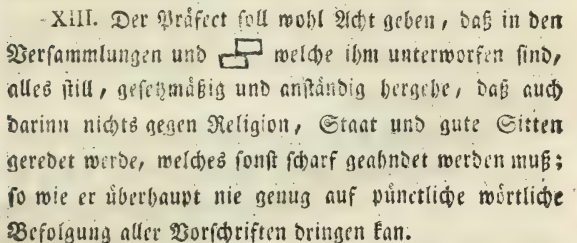 XIII. Der Präfect soll wohl Acht geben, daß in den
Versammlungen und welche ihm unterworfen sind,
alles still, gesetzmäßig und anständig hergehe, daß auch
darinn nichts gegen Religion, Staat und gute Sitten
geredet werde, welches sonst scharf geahndet werden muß;
so wie er überhaupt nie genug auf pünctliche wörtliche
Befolgung aller Vorschriften dringen kan.